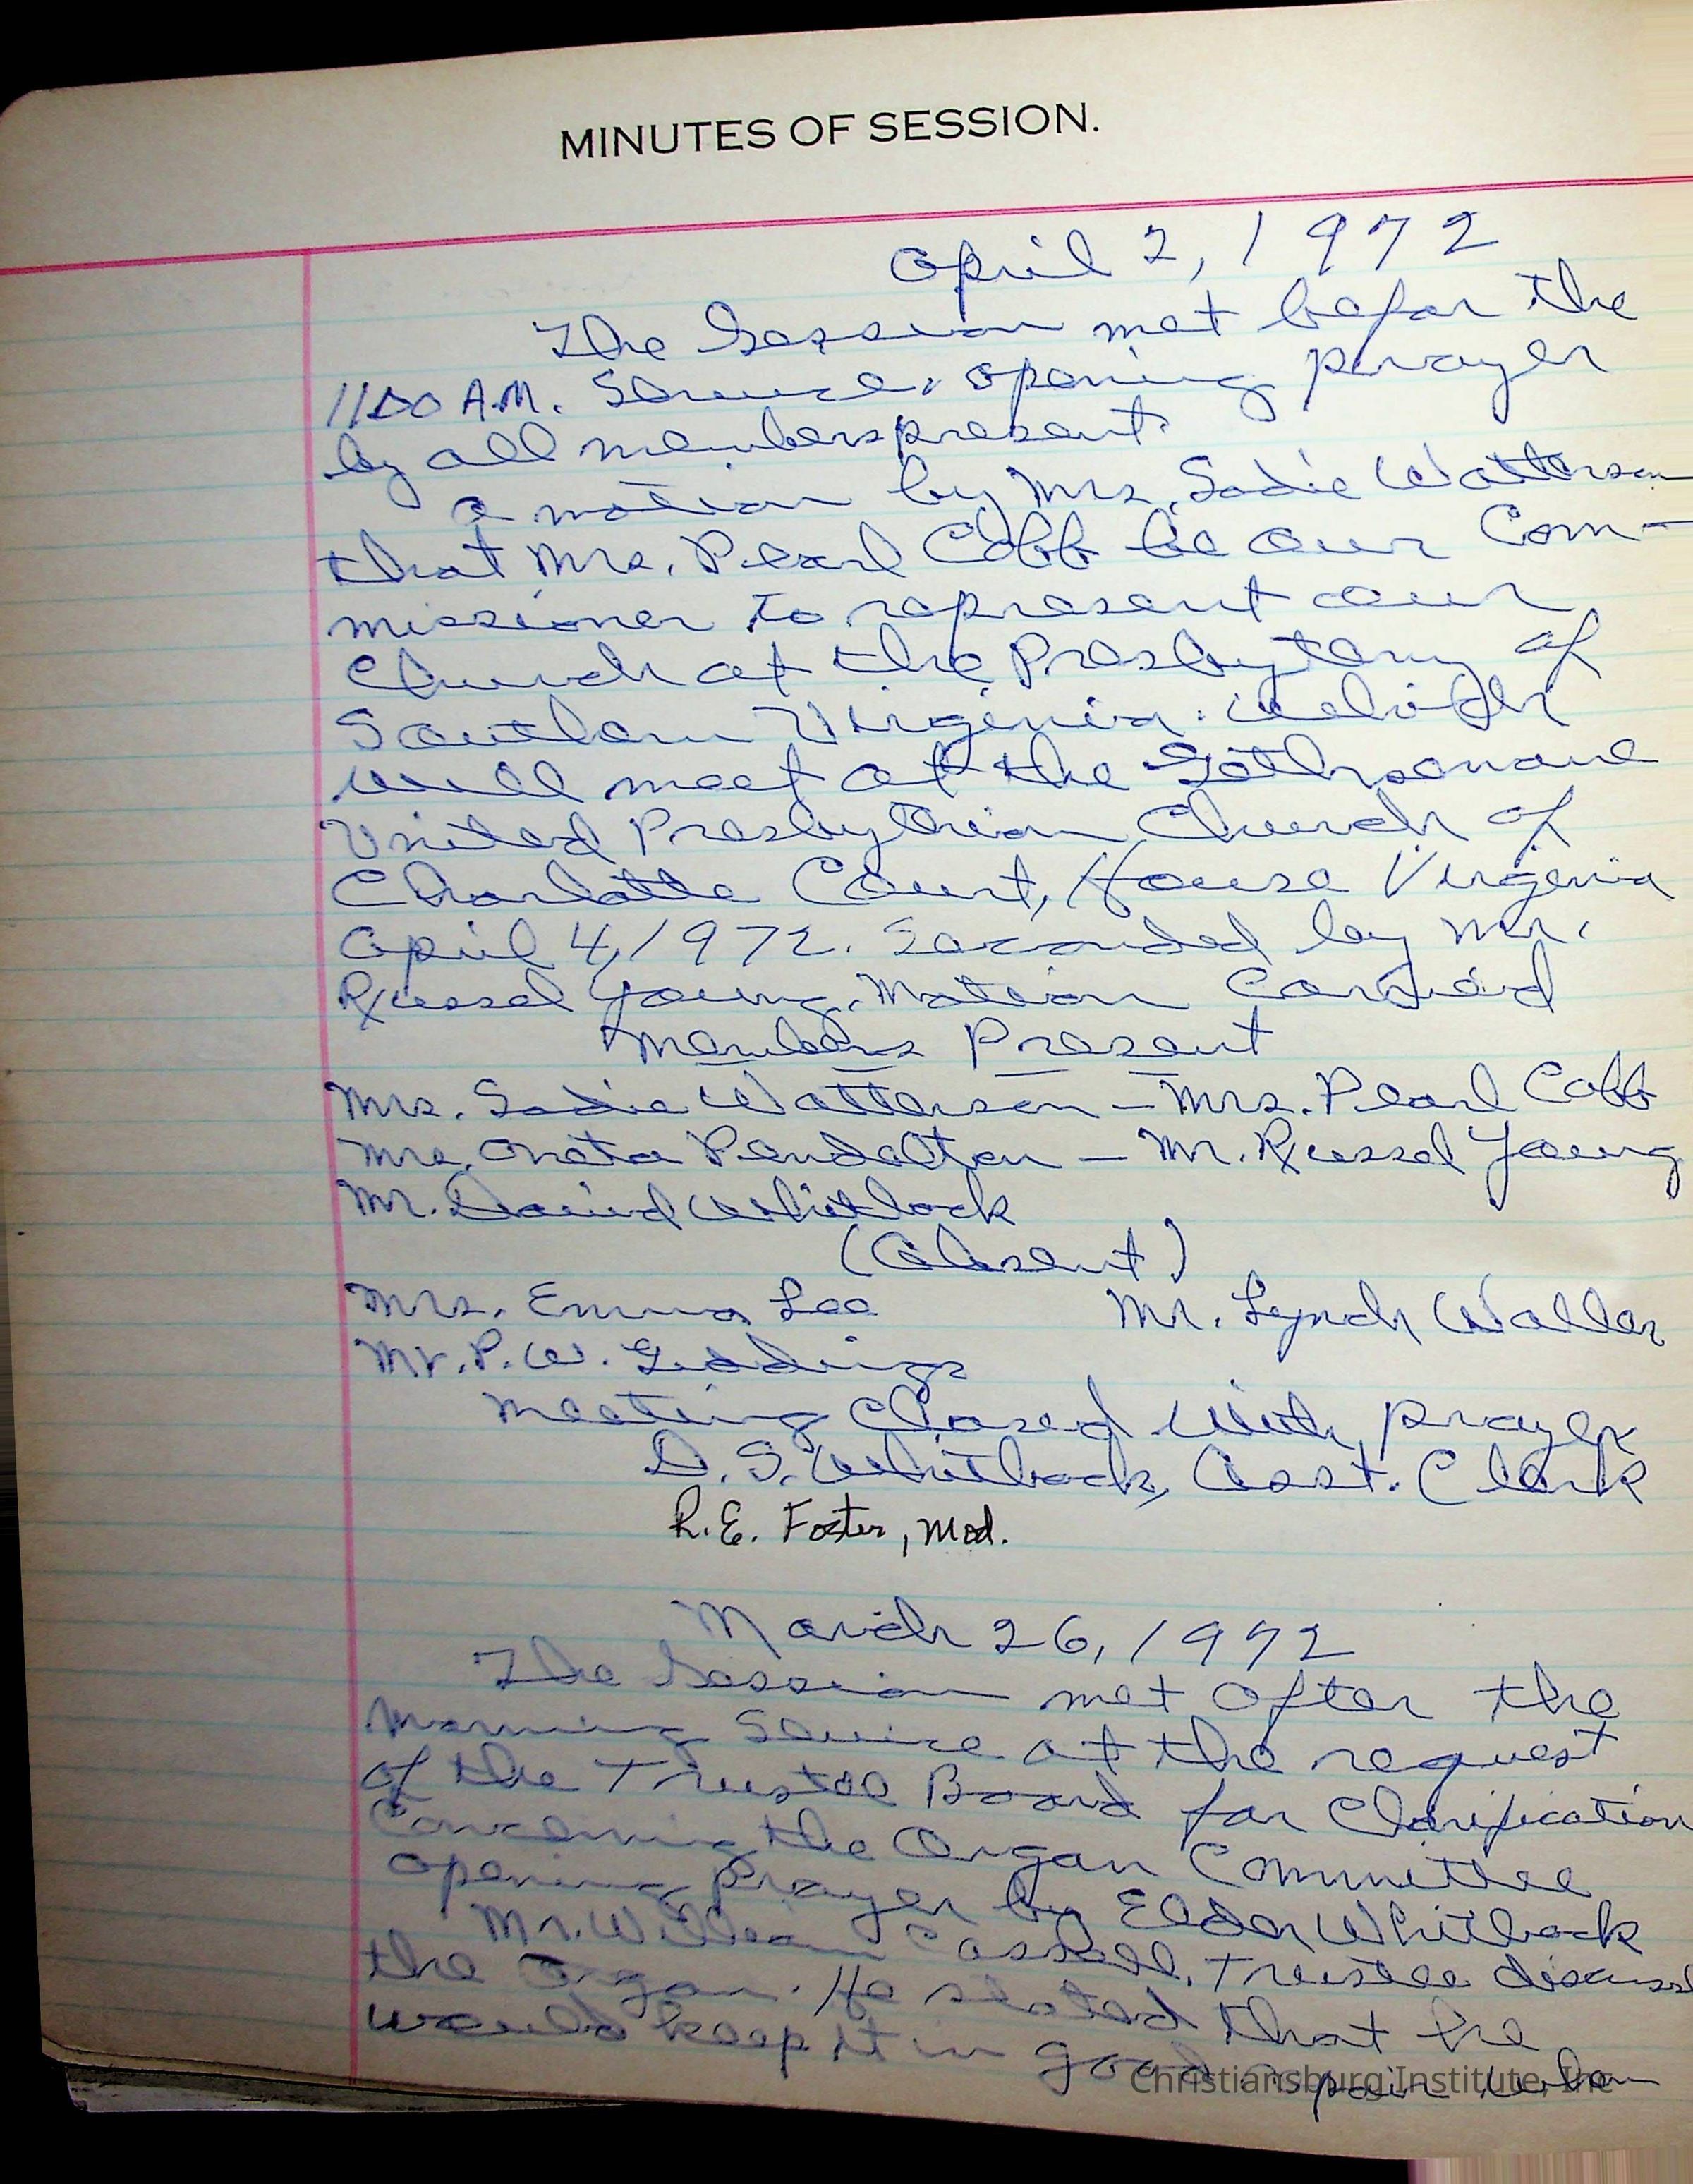 MINUTES OF SESSION.
April 2, 1972
The Session met befor the
11:00 A.M. Service, opening prayer
by all members present.
a motion by Mrs. Sadie Watterson
that Mrs. Pearl Cobb be our Com-
missioner to represent our
Church at the Presbytery of
Southern Virginia. Which
will meet at the Gethsemane
United Presbyterian Church of
Charlotte Court, House Virginia
April 4, 1972. Seconded by Mr.
Russel Young. Motion Carried
Members Present
Mrs. Sadie Watterson - Mrs. Pearl Cobb
Mrs. Oneta Pendelton - Mr. Russel Young
Mr. David Whitlock
(Absent)
Mrs. Emma Lee Mr. Lynch Waller
Mr. P. W. Giddings
Meeting Closed with prayer
D. S. Whitlock, Asst. Clerk
R. E. Foster, Mod.
March 26, 1972
The Session met after the
Morning Service at the request
of the Trustee Board for Clarification
Concerning the Organ Committee
opening Prayer by Elder Whitlock
Mr. William Casell, Trustee discuss
the Organ. He stated that he
would keep it in good repair when
Christiansburg Institute, Inc